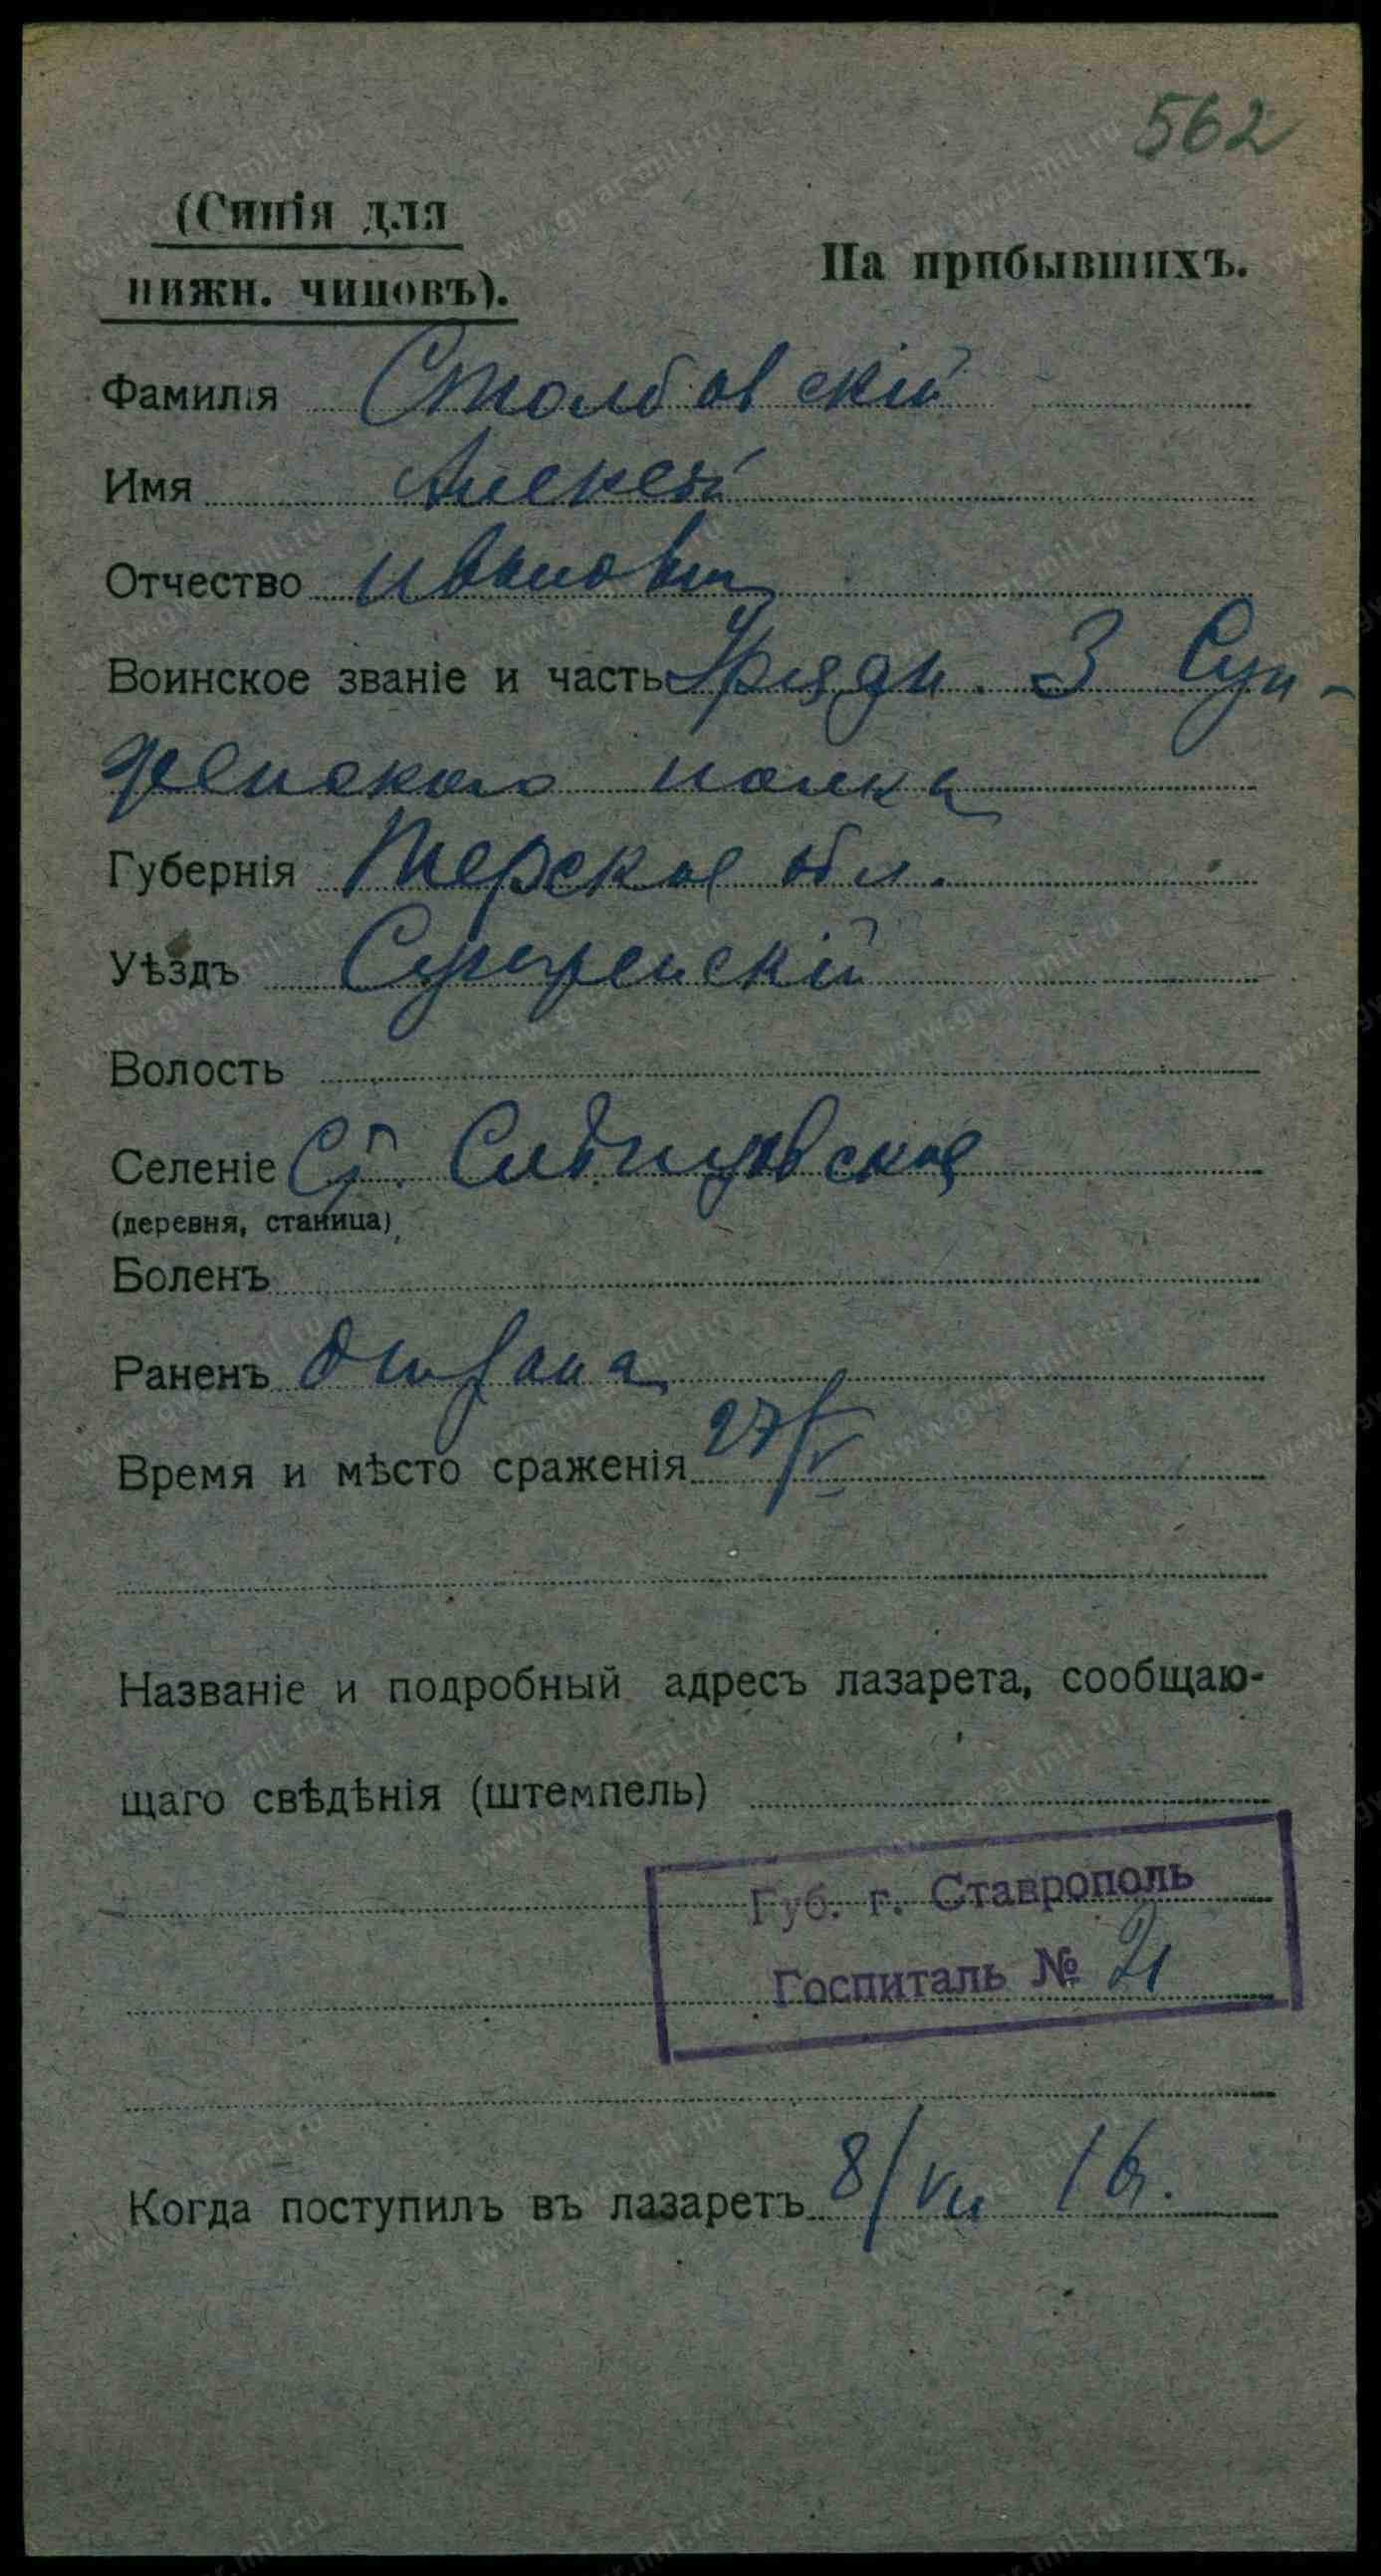 562
(Синія для
нижн. чиновъ).
На прибывшихъ.
Фамилія Столбовскій
Имя Алексей
Отчество Иванович
Воинское званіе и часть Урядн. 3 Сун-
женского полка
Губернія Терская обл.
Уѣздъ Сунженскій
Волость
Селеніе Ст. Слепцовская
(деревня, станица)
Боленъ
Раненъ
Время и мѣсто сраженія 27/V
Названіе и подробный адресъ лазарета, сообщаю-
щаго свѣдѣнія (штемпель)
Губ. г. Ставрополь
Госпиталь № 21
Когда поступилъ въ лазаретъ 8/VII 16г.